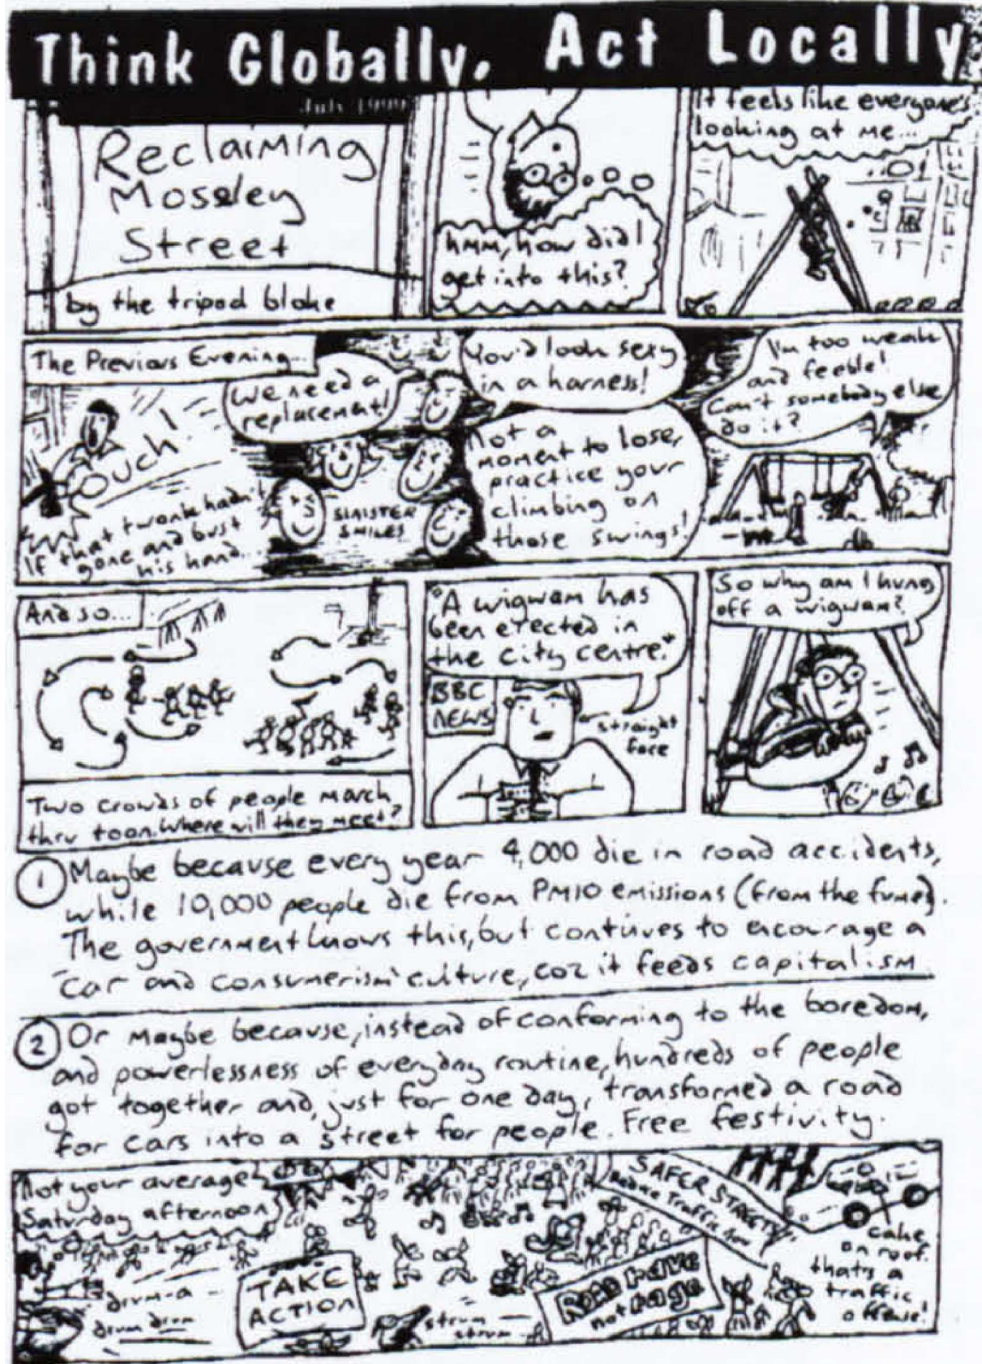 Think Globally, Act Locally
July 1999
Reclaiming
Mossley
Street
by the tripod bloke
hmm, how did I
get into this?
It feels like everyone's
looking at me...
The Previous Evening...
Ouch!
If that twonk hadn't
gone and bust
his hand...
We need a
replacement!
SINISTER
SMILES
You'd look sexy
in a harness!
Not a
moment to lose,
practice your
climbing on
those swings!
I'm too weak
and feeble!
Can't somebody else
do it?
And so...
Two crowds of people march
thru toon. Where will they meet?
"A wigwam has
been erected in
the city centre."
BBC
NEWS
straight
face
So why am I hung
off a wigwam?
1 Maybe because every year 4,000 die in road accidents,
while 10,000 people die from PM10 emissions (from the fumes).
The government knows this, but continues to encourage a
'car and consumerism' culture, coz it feeds capitalism.
2 Or maybe because, instead of conforming to the boredom,
and powerlessness of everyday routine, hundreds of people
got together and, just for one day, transformed a road
for cars into a street for people. Free festivity.
Not your average
Saturday afternoon
drum-a-
drum drum
TAKE
ACTION
strum -
strum -
SAFER STREETS
Reduce Traffic Now
Road rave
not rage
cake
on roof.
that's a
traffic
offense!